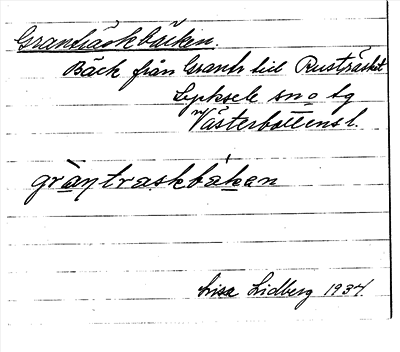 Granträskbäcken.
Bäck från Grantr till Rusträsket
Lycksele sn o tg
Västerbottens l.
gràntraskbækan
Lisa Lidberg 1934.